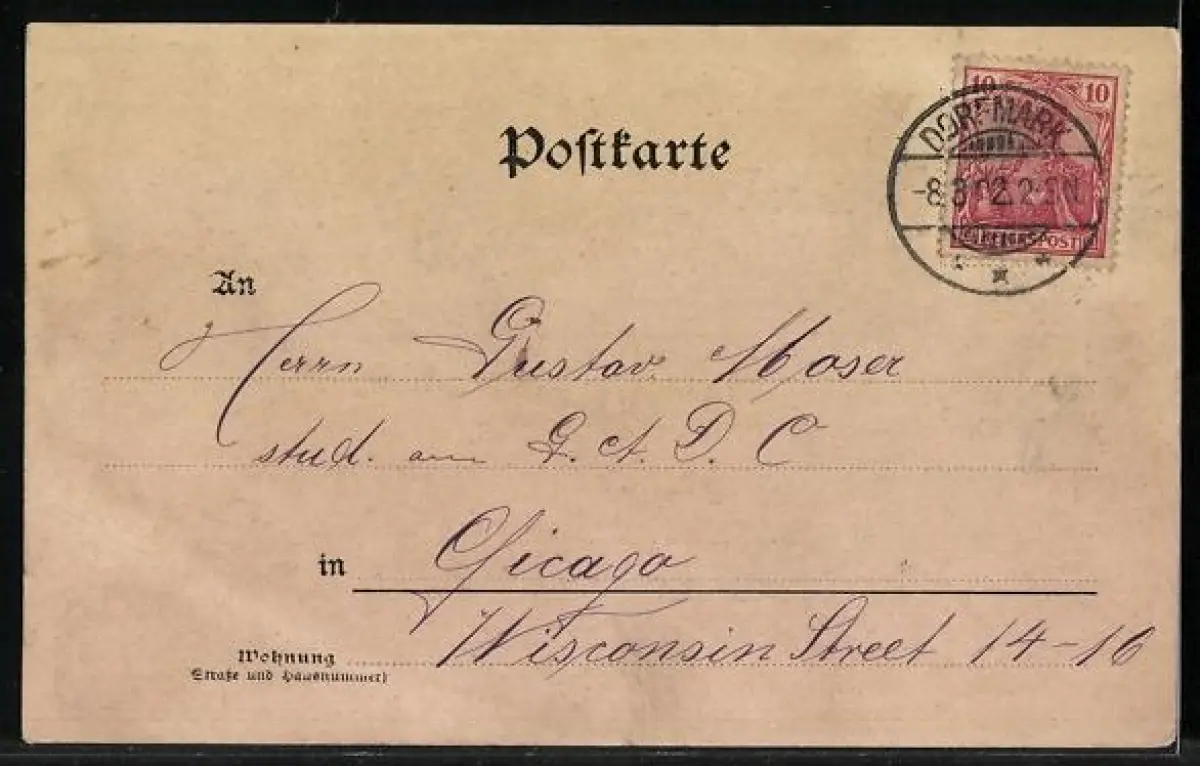 Postkarte
10 10
REICHSPOST
DORFMARK
-8.3.02.2-3N
An
Herrn Gustav Moser
stud. am G. A. D. C
in Chicago
Wisconsin Street 14-16
Wohnung
(Straße und Hausnummer)